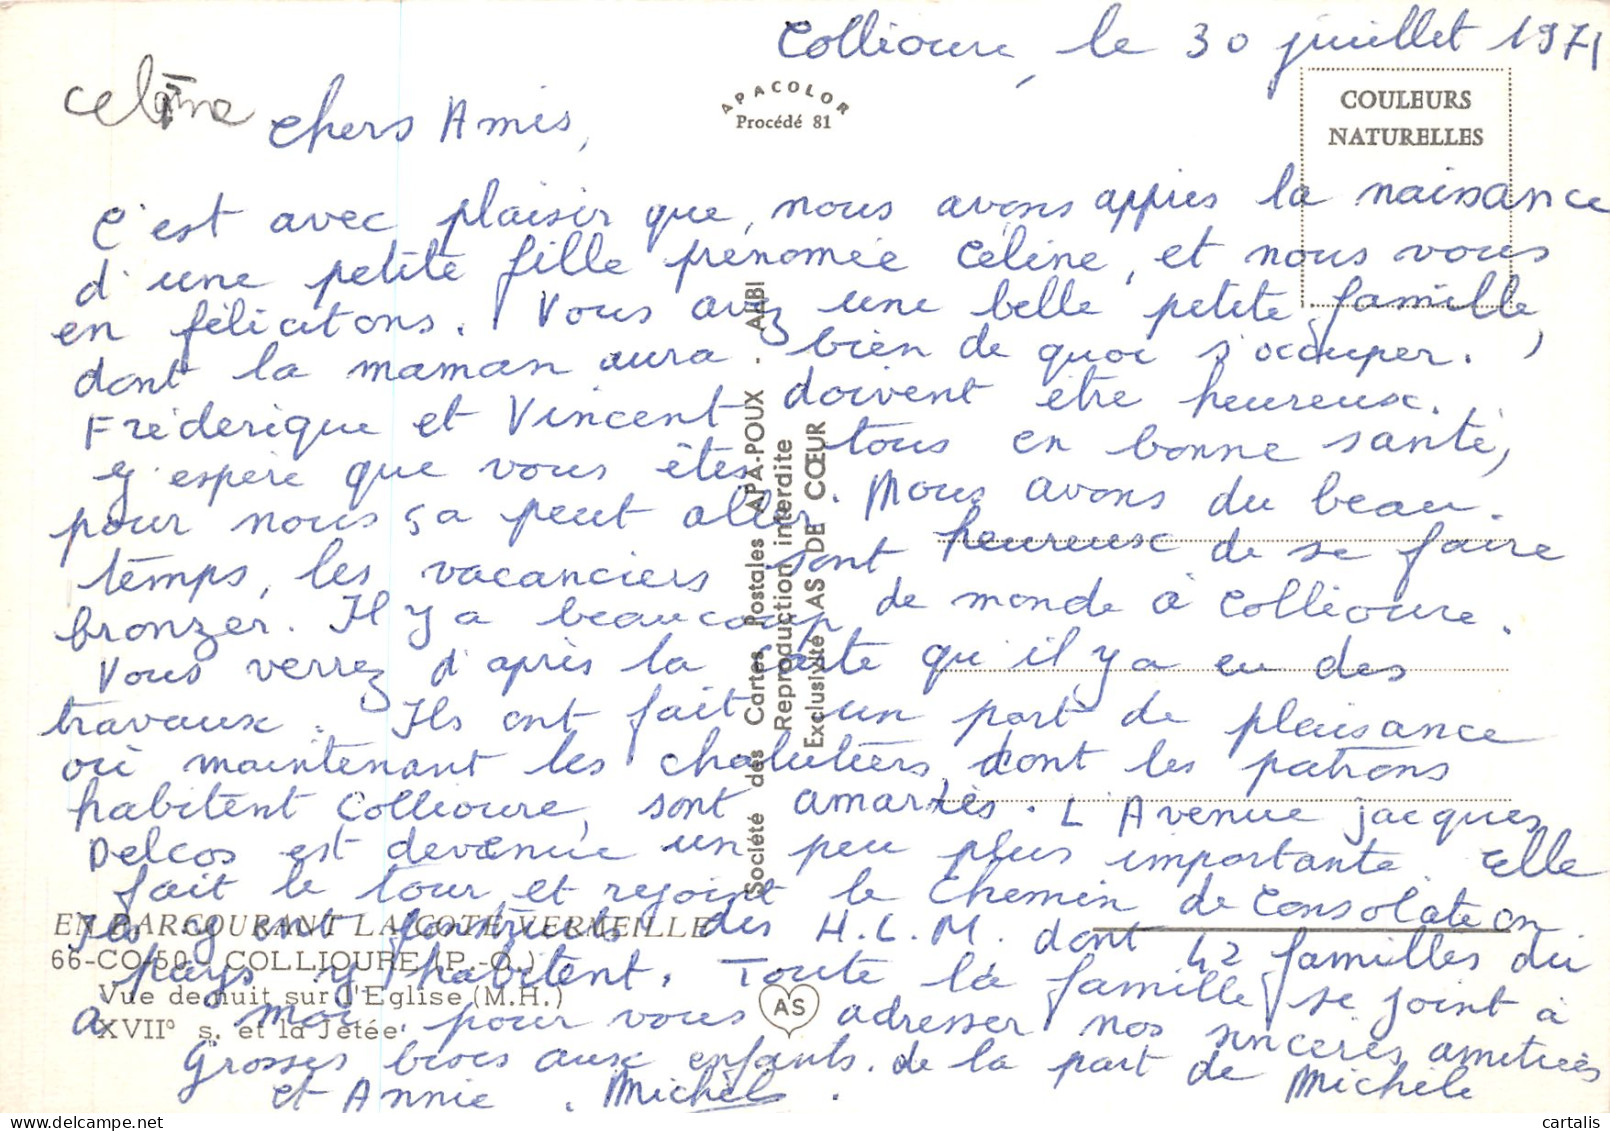 Collioure, le 30 juillet 1971
celine
APACOLOR
Procédé 81
COULEURS
NATURELLES
Chers Amis,
C'est avec plaisir que, nous avons appris la naissance
d'une petite fille prénomée Céline, et nous vous
en félicitons. Vous avez une belle petite famille,
dont la maman aura bien de quoi s'occuper.
Fréderique et Vincent doivent être heureux.
J'espère que vous êtes tous en bonne santé,
pour nous ça peut aller. Nous avons du beau
temps, les vacanciers sont heureux de se faire
bronzer. Il y a beaucoup de monde à Collioure.
Vous verrez d'après la carte qu'il y a eu des
travaux. Ils ont fait un port de plaisance
où maintenant les chalutiers, dont les patrons
habitent Collioure, sont amarrés. L'Avenue Jacques
Delcos est devenue un peu plus importante. Elle
fait le tour et rejoint le Chemin de Consolation
Ils y ont construits des H.L.M. dont 42 familles du
pays y habitent. Toute la famille se joint à
a moi pour vous adresser nos sincères amitiés
Grosses bises aux enfants. de la part de Michèle
et Annie. Michèle.
EN PARCOURANT LA COTE VERMEILLE
66-CO-50 - COLLIOURE (P.-O.)
Vue de nuit sur l'Eglise (M.H.)
XVII° s. et la Jetée
AS
Société des Cartes Postales APA-POUX - ALBI
Reproduction interdite
Exclusivité AS DE CŒUR
cartalis